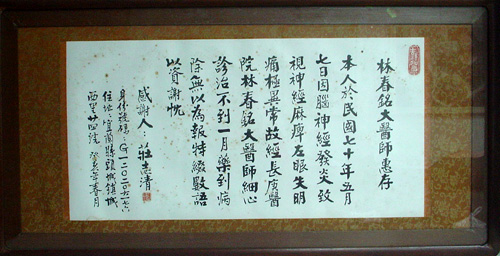 林春銘大醫師惠存
本人於民國七十年五月
七日因腦神經發炎致
視神經麻痺左眼失明
痛極異常故經長庚醫
院林春銘大醫師細心
診治不到一月藥到病
除無以為報特綴數語
以資謝忱
感謝人：莊志清
號碼：
住址：宜蘭縣頭城鎮城
西里廿四號 癸亥年春月